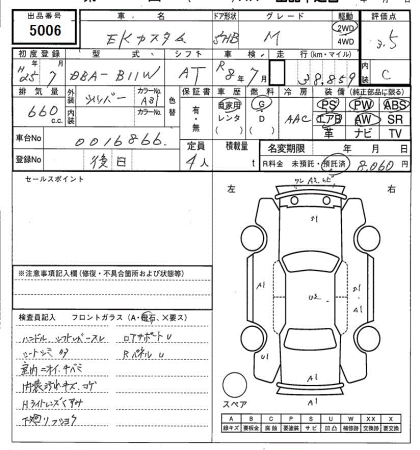 出品番号 5006
車名 EKカスタム
ドア形状 5HB
グレード M
駆動 2WD 4WD
評価点 3.5
初度登録 H25年7月
型式 DBA-B11W
シフト AT
車検 R8年7月
走行(km・マイル) 38,859
内装 C
排気量 660 c.c.
外装 シルバー カラーNo. A31
内装 カラーNo.
色替
保証書 有・無
車歴 自家用 レンタ ( )
燃料 G D ( )
冷房 AAC
装備(純正部品に限る) PS PW ABS
エアB AW SR
革 ナビ TV
車台No 0016866
登録No 後日
定員 4人
積載量 t
名変期限 年 月 日
R料金 未預託・預託済 8,060円
セールスポイント
左 右
※注意事項記入欄(修復・不具合箇所および状態等)
検査員記入 フロントガラス(A・飛石、×要ス)
ハンドル シフトレバースレ ロアサポートU
シートシミ RパネルU
室内ニオイ
内装汚れキズ コゲ
Hライトレンズくすみ
下廻り
A1
A1
A1
U2
U1
A1
A1
スペア
A B C P S U W X XX
線キズ 要板金 腐蝕 要塗装 サビ 凹凸 補修跡 要交換 交換済